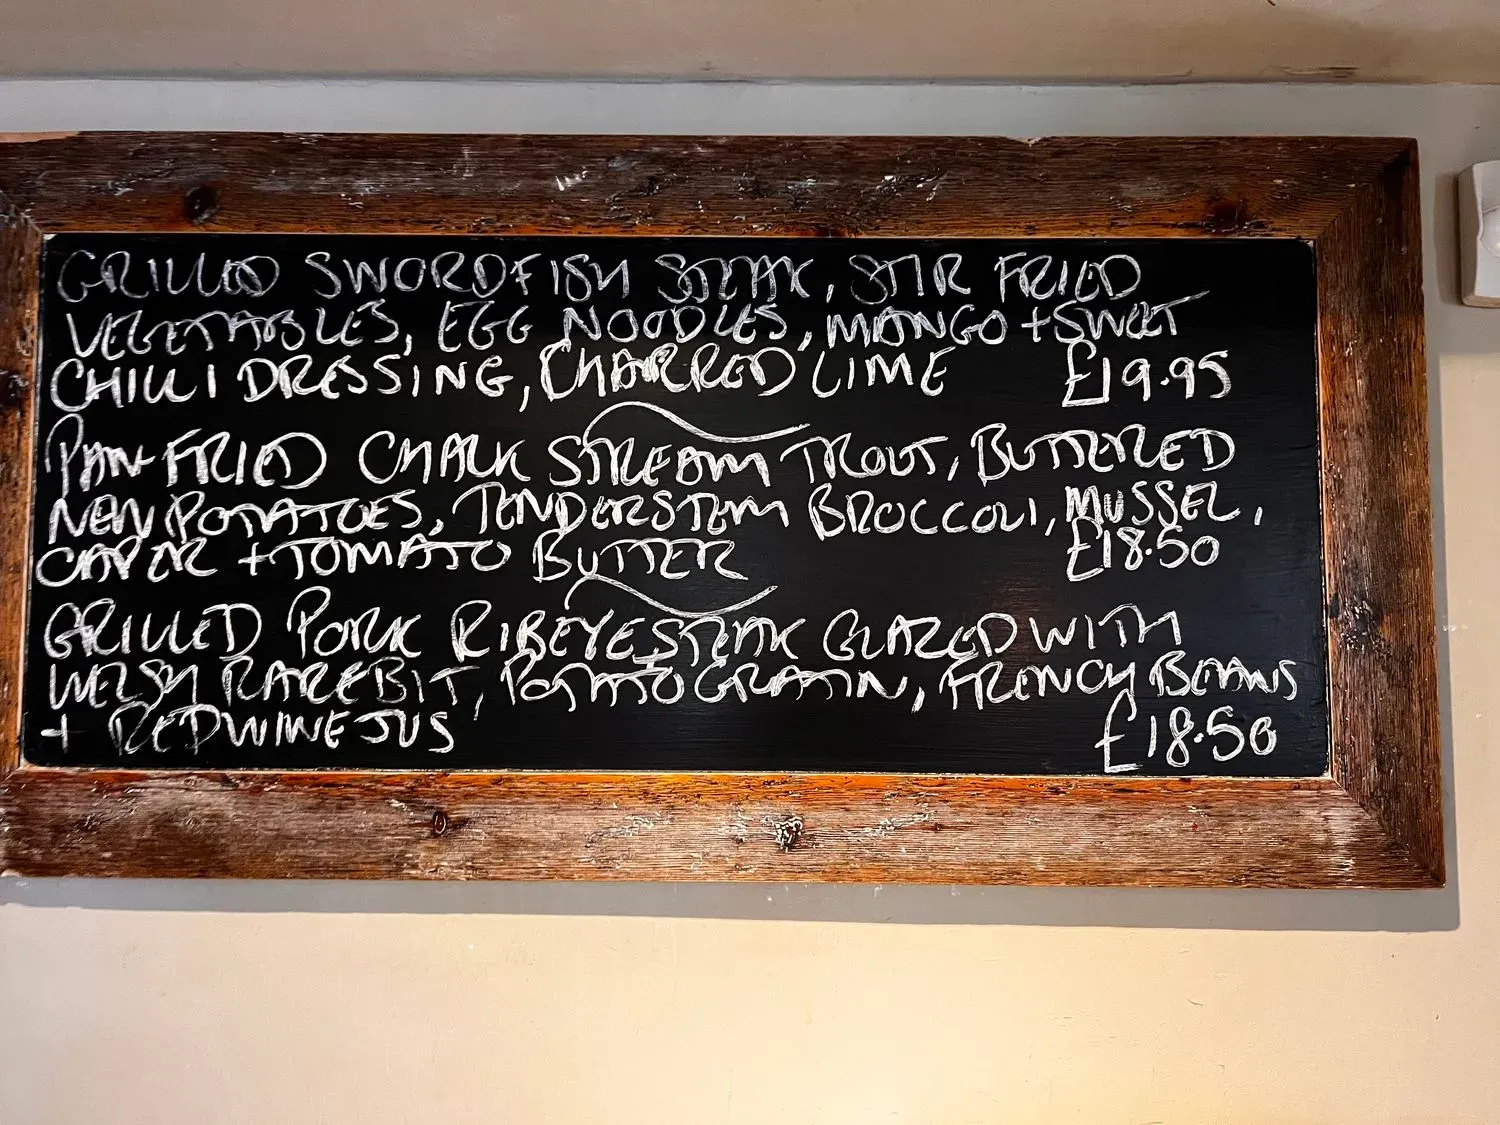 GRILLED SWORDFISH STEAK, STIR FRIED
VEGETABLES, EGG NOODLES, MANGO + SWEET
CHILLI DRESSING, CHARRED LIME £19.95
PAN FRIED CHALK STREAM TROUT, BUTTERED
NEW POTATOES, TENDERSTEM BROCCOLI, MUSSEL,
CAPER + TOMATO BUTTER £18.50
GRILLED PORK RIBEYE STEAK GLAZED WITH
WELSH RAREBIT, POTATO GRATIN, FRENCH BEANS
+ RED WINE JUS £18.50